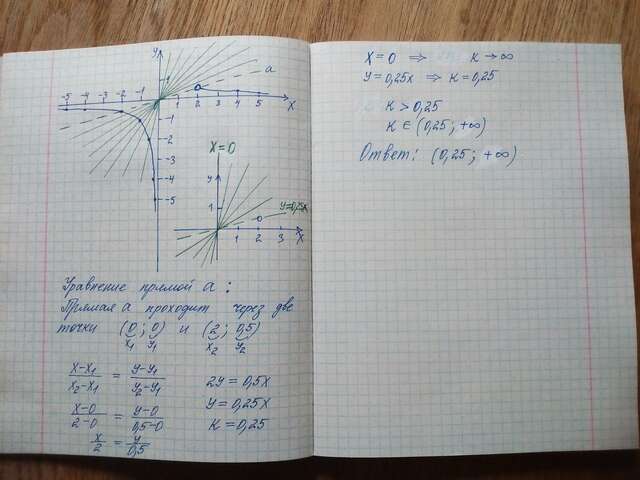 y
a
-5 -4 -3 -2 -1
1 2 3 4 5 X
-1
-2
-3
-4
-5
X=0
y
1
y=0,25x
1 2 3 X
Уравнение прямой a:
Прямая a проходит через две
точки (0; 0) и (2; 0,5)
x₁ y₁ x₂ y₂
(x-x₁)/(x₂-x₁) = (y-y₁)/(y₂-y₁)
(x-0)/(2-0) = (y-0)/(0,5-0)
x/2 = y/0,5
2y = 0,5x
y = 0,25x
к = 0,25
X=0 ⇒ к→∞
y=0,25x ⇒ к=0,25
к > 0,25
к ∈ (0,25; +∞)
Ответ: (0,25; +∞)